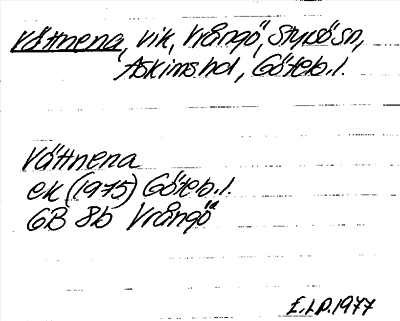 Vättnena, vik, Vrångö, Styrsö sn,
Askims hd, Göteb. l.
Vättnena
ek (1975) Göteb. l.
6B 8b Vrångö
E.I.P. 1977